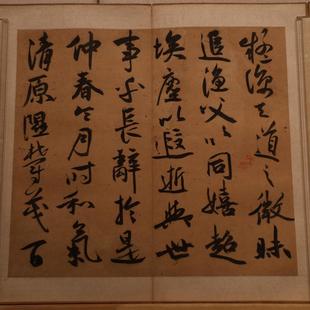 疑諒天道之微昧
追漁父以同嬉超
埃塵以遐逝與世
事乎長辭於是
仲春令月時和氣
清原隰鬱茂百